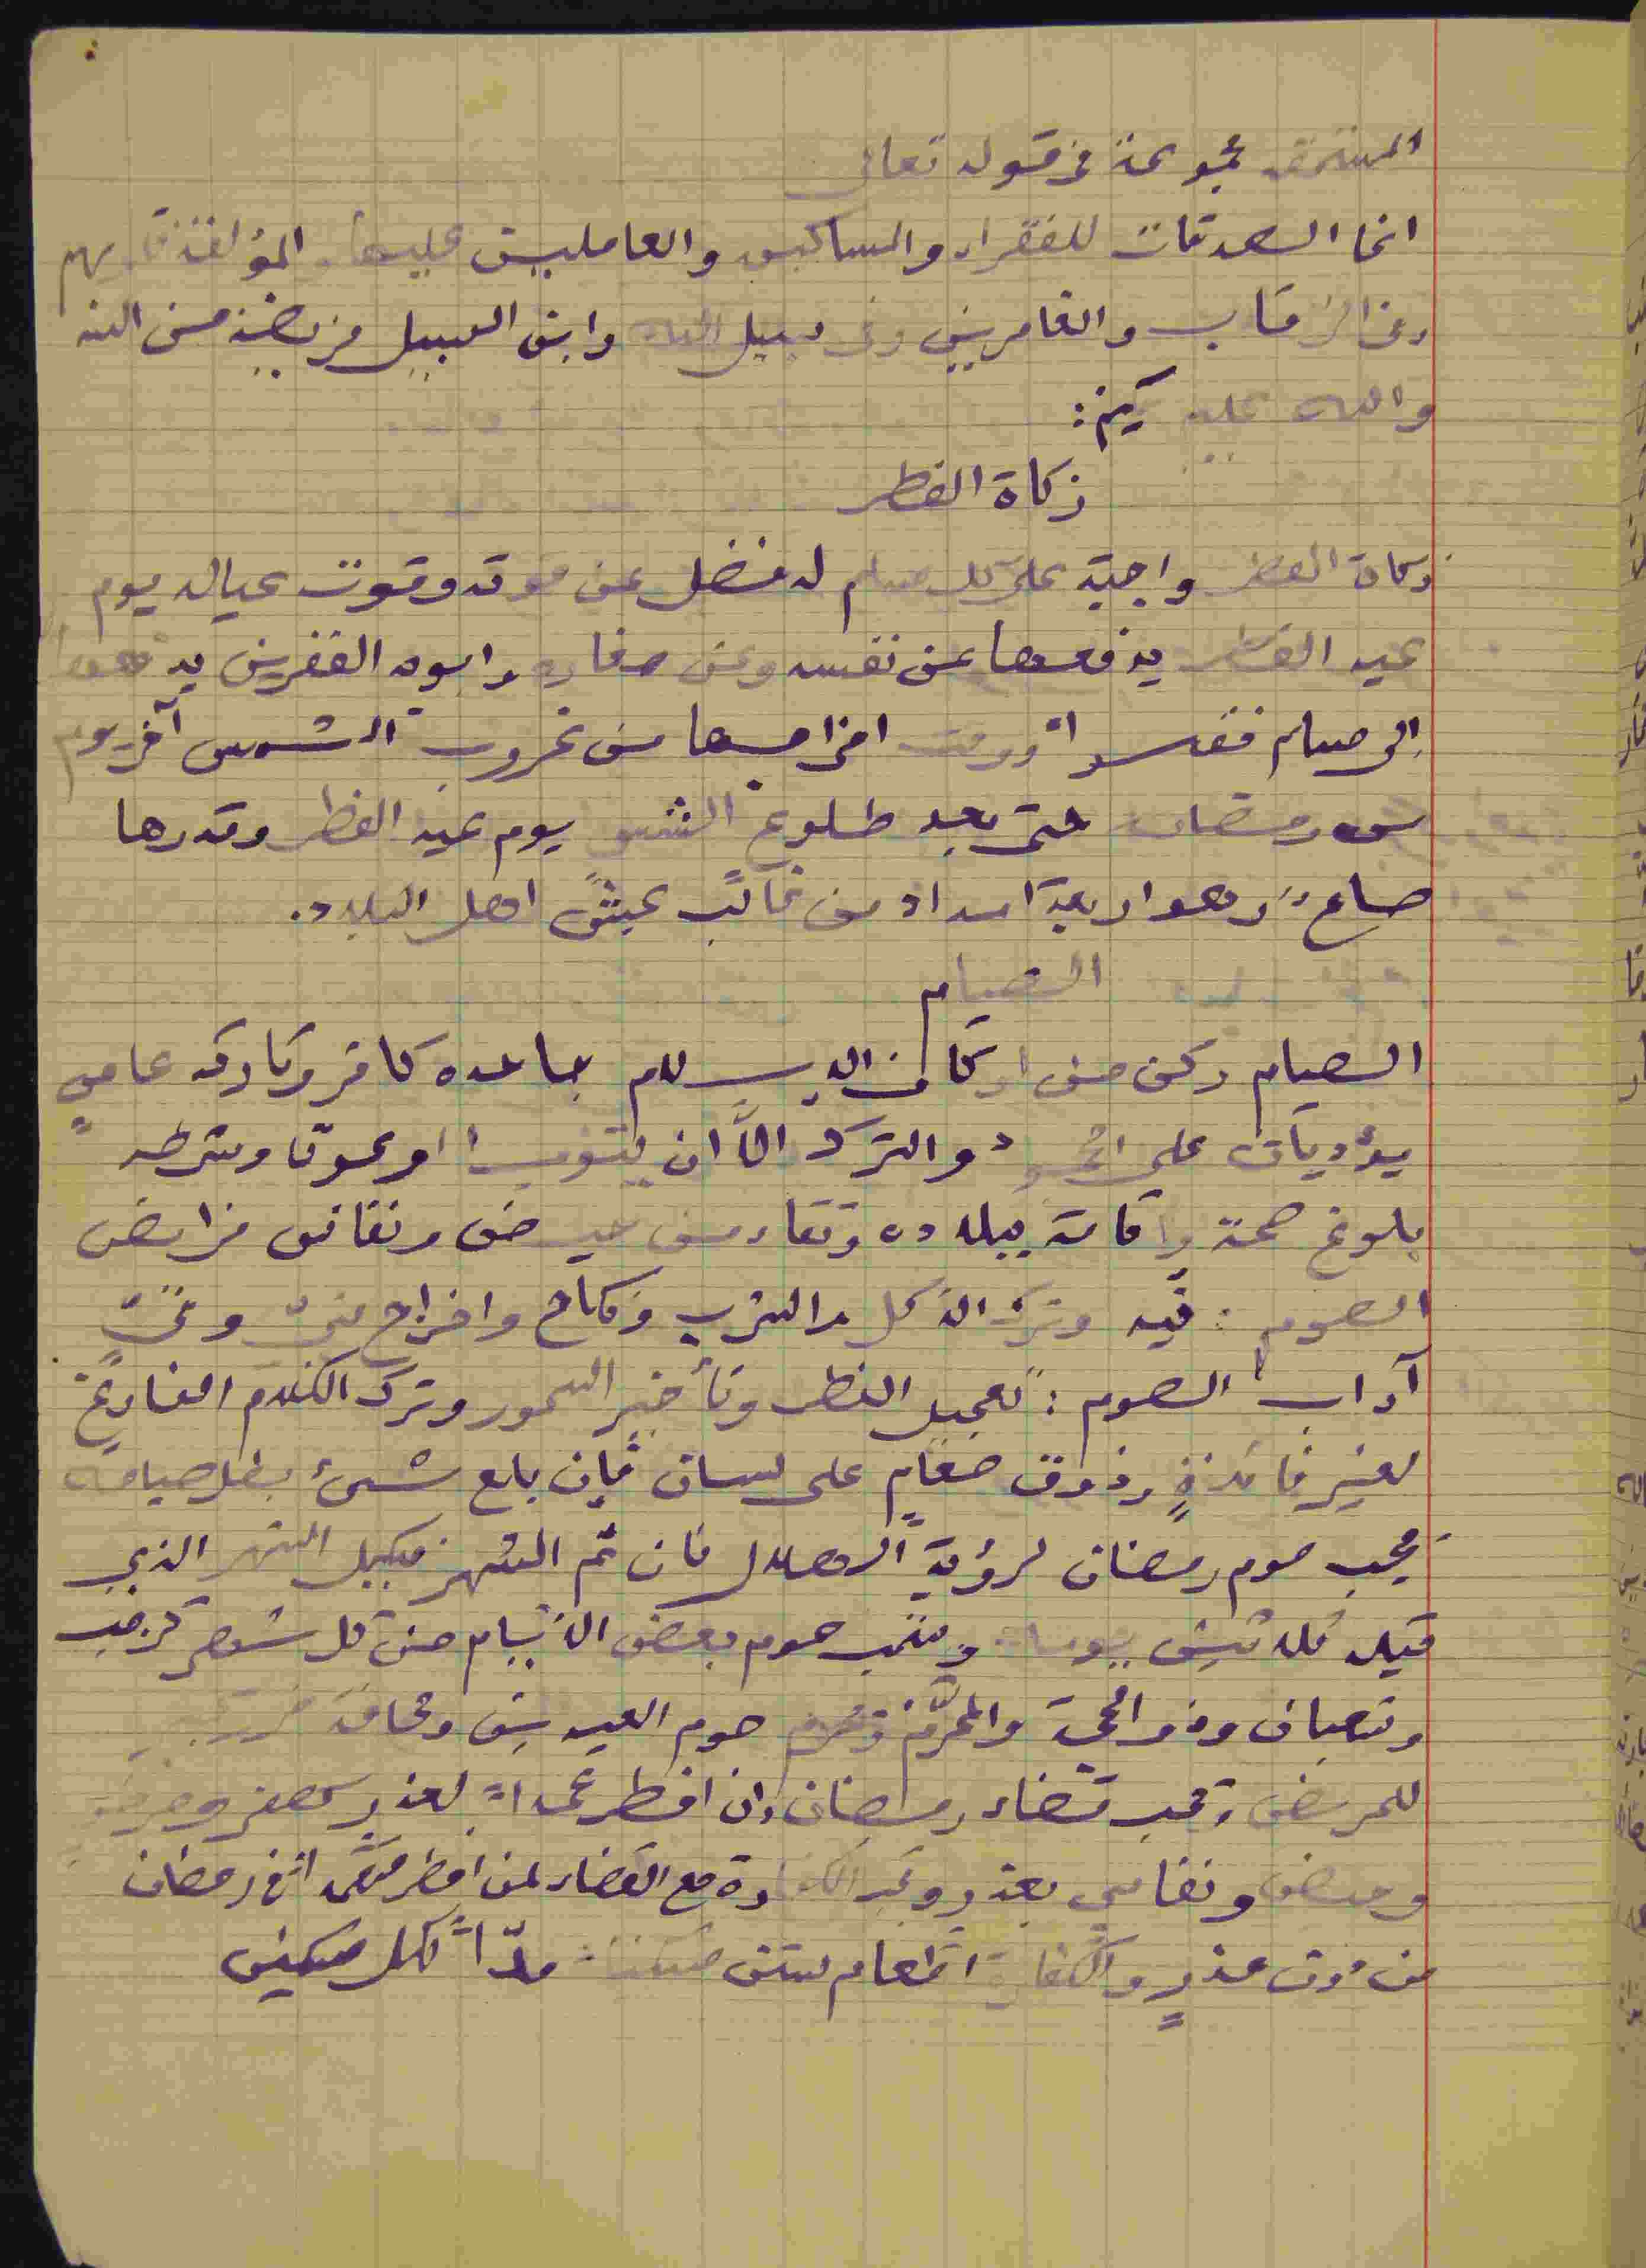 المستحق مجموعة في قوله تعالى
انما الصدقات للفقراء والمساكين والعاملين عليها والمؤلفة قلوبهم
وفي الرقاب والغارمين وفي سبيل الله وابن السبيل فريضة من الله
والله عليم حكيم:
زكاة الفطر
زكاة الفطر واجبة على كل مسلم له فضل عن قوته وقوت عياله يوم
عيد الفطر يدفعها عن نفسه وعن صغاره وابويه الفقرين يدفعها
الى مسلم فقير ووقت اخراجها من غروب الشمس آخر يوم
من رمضان حتى بعد طلوع الشمس يوم عيد الفطر وقدرها
صاعٌ وهو اربعة امداد من غالب عيش اهل البلاد.
الصيام
الصيام ركن من اركان الاسلام جاحده كافر وتاركه عاصٍ
يؤديان على الجحود والترك الاَّ ان يتوبا او يموتا وشرطه
بلوغ صحة واقامة ببلاده ونقاء من حيض ونفاس فرايض
الصوم: نية وترك الاكل والشرب ونكاح واخراج منيّ وقيٍّ
آداب الصوم: تعجيل الفطر وتأخير السحور وترك الكلام الفارغ
لغير فائدةٍ وذوق طعامٍ على لسان فإن بلع شيئ بطل صيامه
يجب صوم رمضان لرؤية الهلال فان تم الشهر فيكمل الشهر الذي
قبله ثلاثين يوما ويستحب صوم بعض الأيام من كل شهر كرجب
وشعبان وذو الحجة والمحرَّم وتحرم صوم العيدين
للمريض وتجب قضاء رمضان وان افطر عمداً لعذر كسفر ومرض
وحيض ونفاسٍ بعذر وتجب الكفارة مع القضاء لمن افطر متعمداً في رمضان
من دون عذرٍ والكفارة اطعام ستين مسكينا مدّاً لكل مسكين